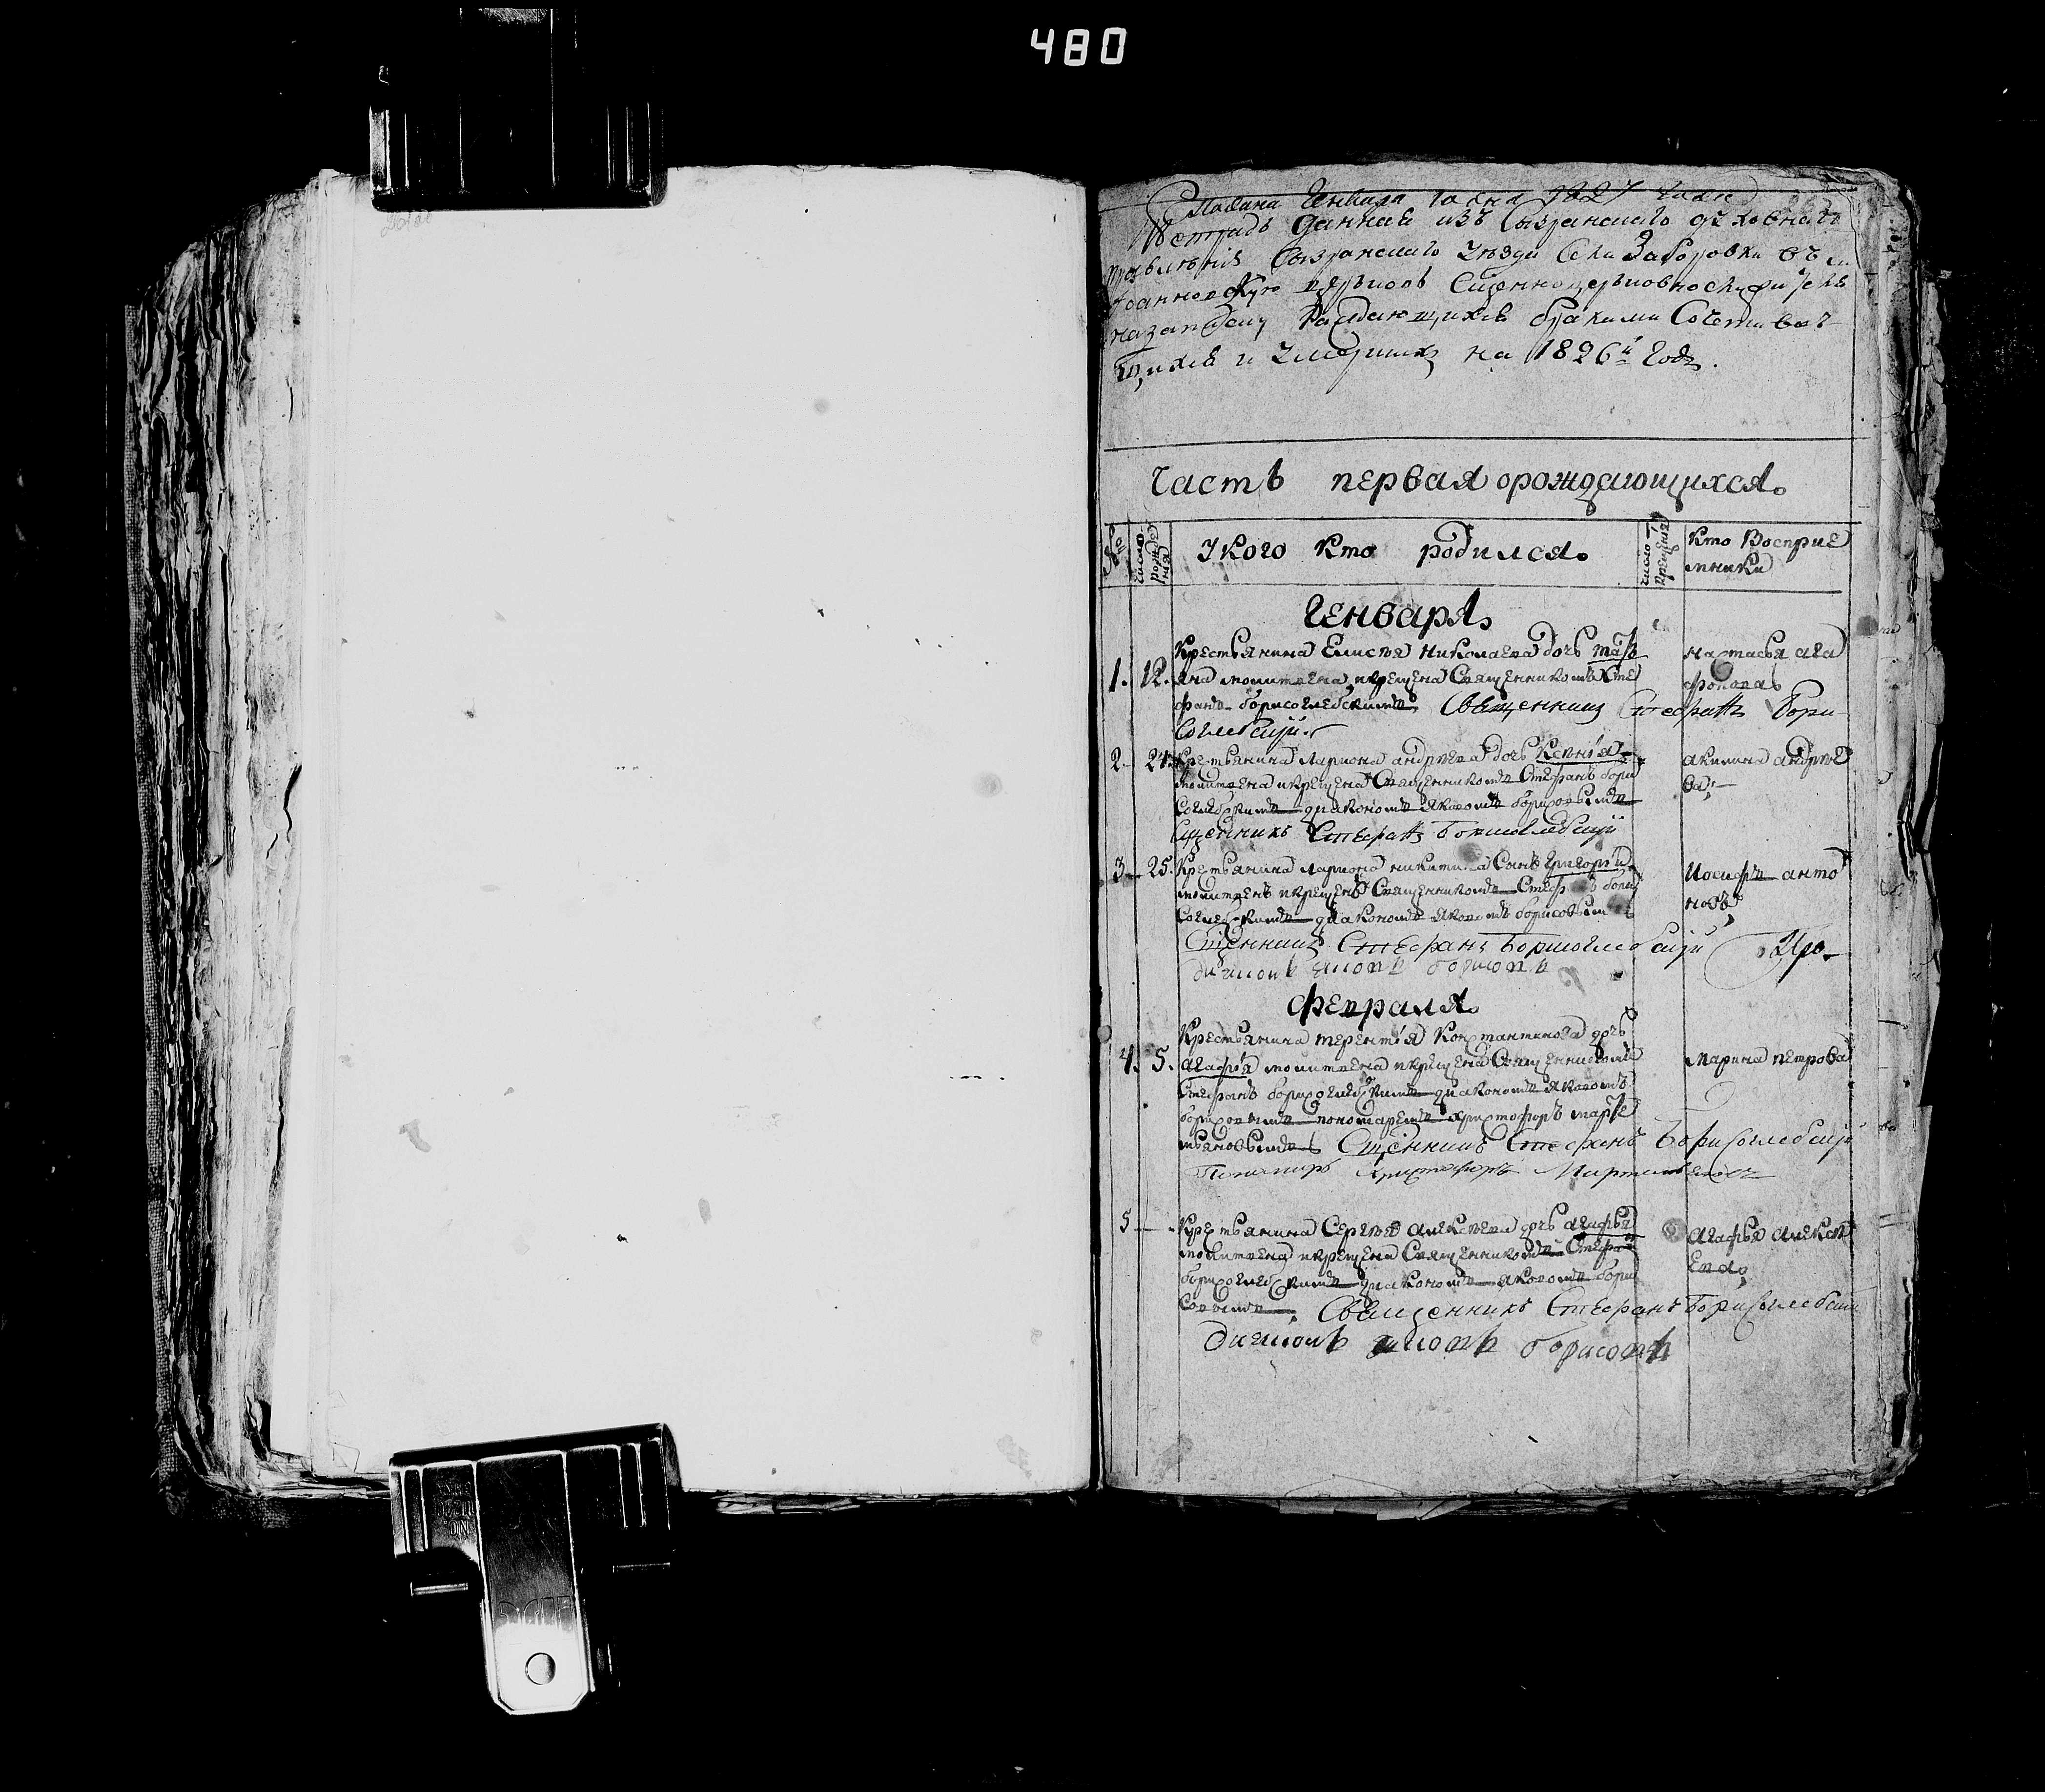 480
Подана Генваря 1827 года
Тетрадь данная изъ Сызранскаго духовнаго
правленія Сызранскаго уезда Села Заборовки въ
Іоанновскую церьковь Сщенноцерьковнослужителѣ
на записку Раждающихся браками Сочетавъ
шихся и Умершихъ на 1826й Годъ.
Часть первая орождающихся.
№
число рожде
нія
Укого кто родился.
число
крещенія
кто Восприе
мники
Генваря
Крестьянина Елисея Николаева дочь татья
1. 12. яна молитвена, икрещена Священникомъ Сте
фаномъ борисоглебскимъ. Священникъ Стефанъ Бори
соглебскій.
настасья ага
фонова
2. 24. Крестьянина Лариона андреева дочь Ксенія
молитвена икрещена Священникомъ Стефаномъ бори
соглебскимъ диакономъ яковомъ борисовымъ
Сщенникъ Стефанъ Борисоглебскій
акилина андрее
ва,
3 25. Крестьянина Лариона никитина Сынъ григорій
молитвенъ икрещенъ Священникомъ Стефаномъ бори
соглебскимъ диакономъ яковомъ борисовымъ
Сщенникъ Стефанъ Борисоглебскій
диаконъ яковъ борисовъ
Иосифъ анто
новъ
Февраля
Крестьянина терентія Константинова дочь
4. 5. агафія молитвена икрещена Священникомъ
Стефаномъ борисоглебскимъ диакономъ яковомъ
борисовымъ пономаремъ христофоромъ марте
мьяновымъ Сщенникъ Стефанъ Борисоглебскій
Пономарь Христофоръ Мартемьяновъ
Марина петрова
5 Крестьянина Сергея алексеева дочь агафья
молитвена икрещена Священникомъ Стефаномъ
борисоглебскимъ диакономъ яковомъ бори
совымъ, Священникъ Стефанъ Борисоглебскій
диаконъ яковъ борисовъ
агафья алексе
ева,